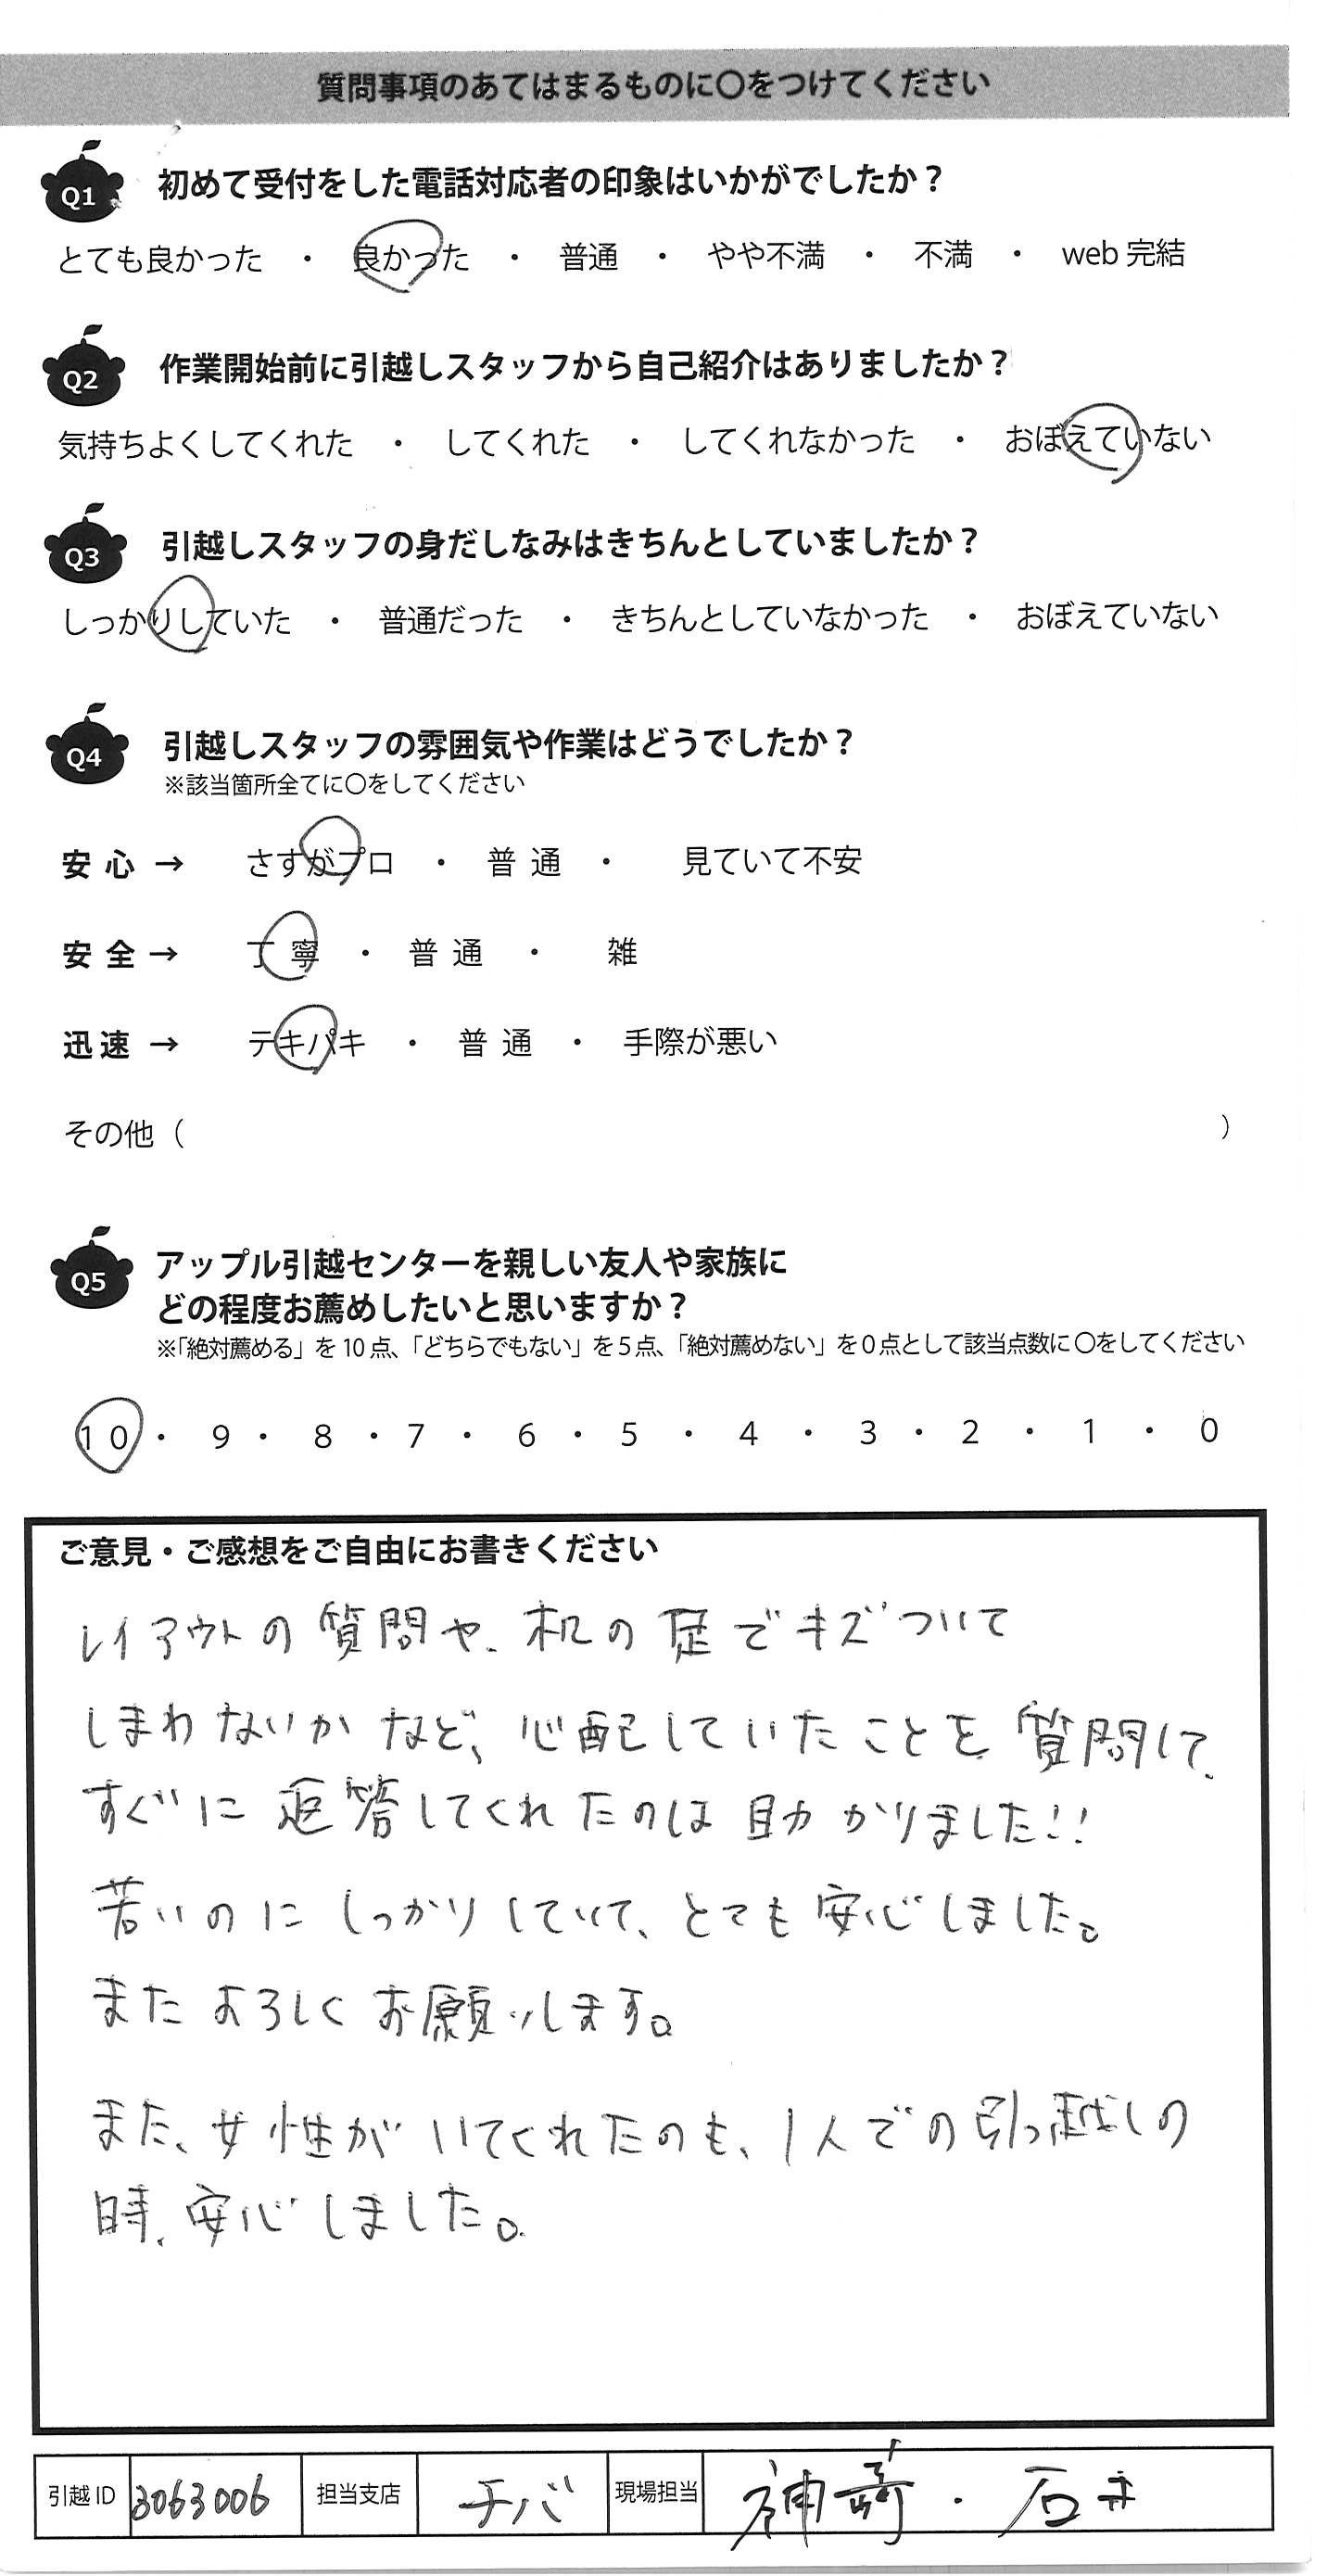 質問事項のあてはまるものに〇をつけてください
Q1 初めて受付をした電話対応者の印象はいかがでしたか？
とても良かった ・ 良かった ・ 普通 ・ やや不満 ・ 不満 ・ web 完結
Q2 作業開始前に引越しスタッフから自己紹介はありましたか？
気持ちよくしてくれた ・ してくれた ・ してくれなかった ・ おぼえていない
Q3 引越しスタッフの身だしなみはきちんとしていましたか？
しっかりしていた ・ 普通だった ・ きちんとしていなかった ・ おぼえていない
Q4 引越しスタッフの雰囲気や作業はどうでしたか？
※該当箇所全てに〇をしてください
安心 → さすがプロ ・ 普通 ・ 見ていて不安
安全 → 丁寧 ・ 普通 ・ 雑
迅速 → テキパキ ・ 普通 ・ 手際が悪い
その他（ ）
Q5 アップル引越センターを親しい友人や家族に
どの程度お薦めしたいと思いますか？
※「絶対薦める」を10点、「どちらでもない」を5点、「絶対薦めない」を0点として該当点数に〇をしてください
10 ・ 9 ・ 8 ・ 7 ・ 6 ・ 5 ・ 4 ・ 3 ・ 2 ・ 1 ・ 0
ご意見・ご感想をご自由にお書きください
レイアウトの質問や、机の足でキズついて
しまわないかなど、心配していたことを質問して、
すぐに返答してくれたのは助かりました!!
若いのにしっかりしていて、とても安心しました。
またよろしくお願いします。
また、女性がいてくれたのも、1人での引っ越しの
時、安心しました。
引越ID 3063006 担当支店 チバ 現場担当 神崎・石井